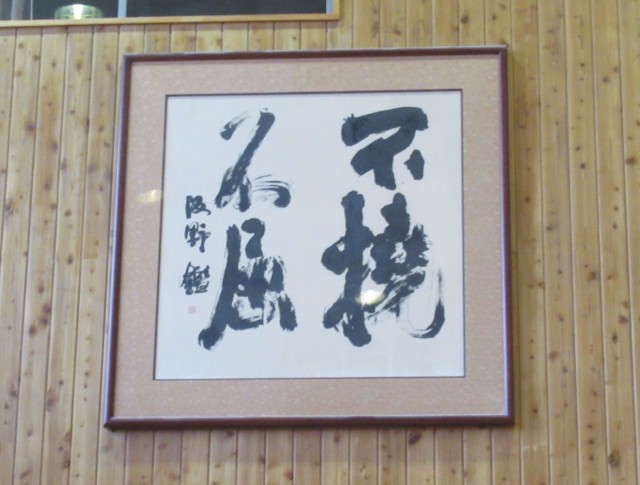 不撓
不屈
阪野鑑